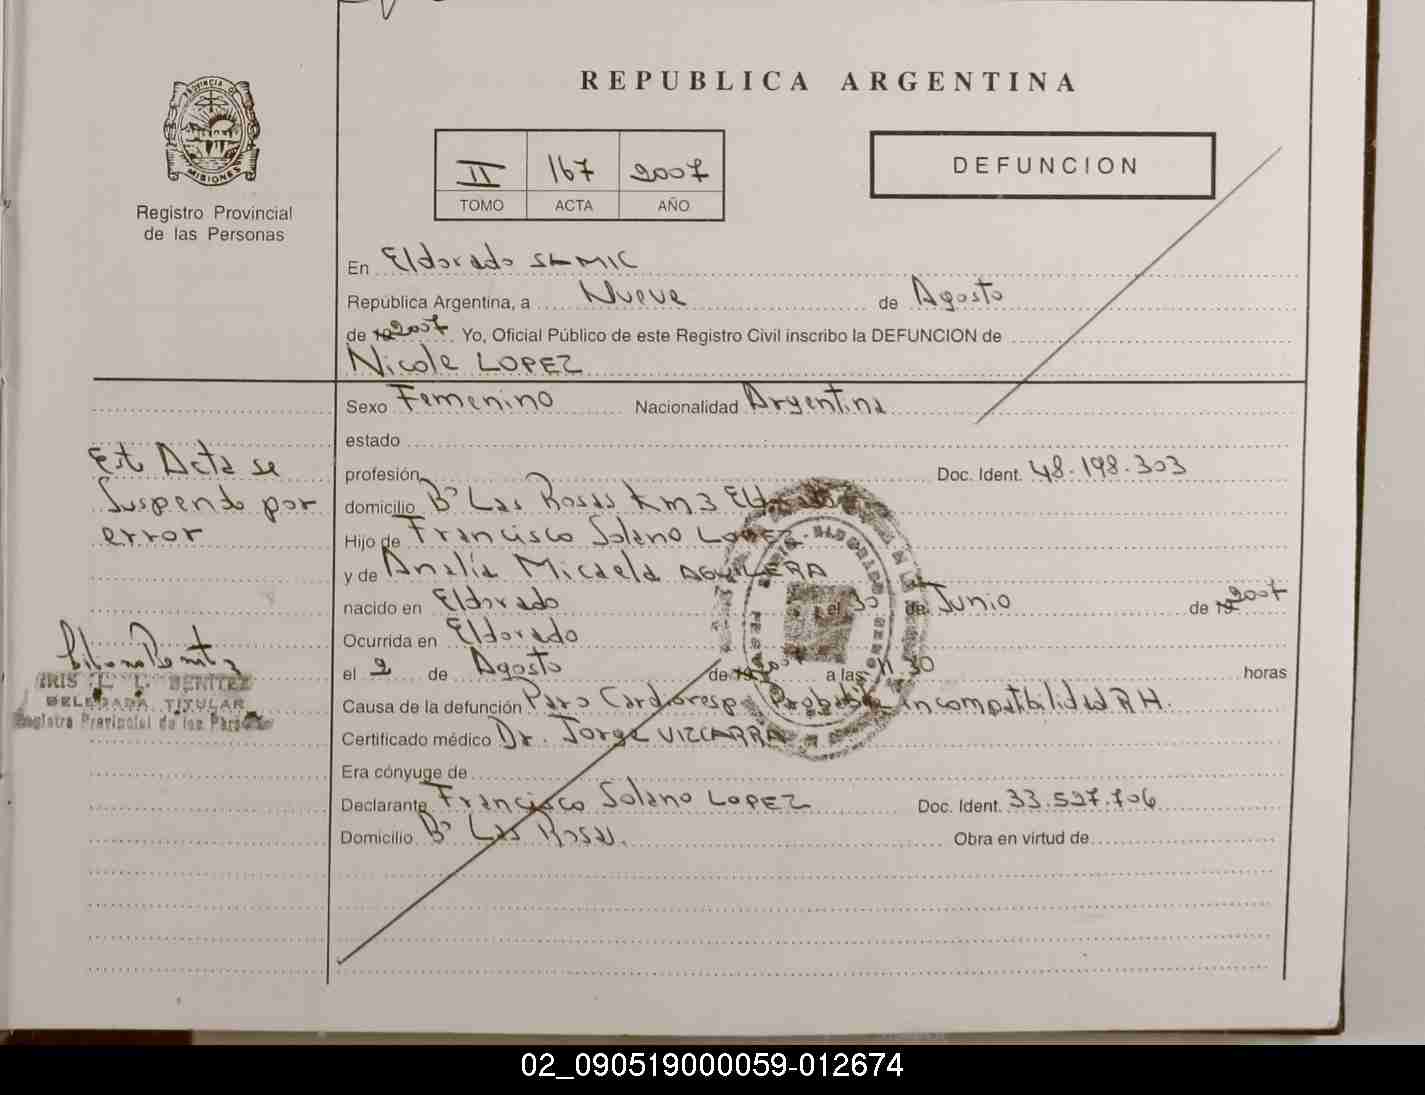 PROVINCIA DE
MISIONES
Registro Provincial
de las Personas
REPUBLICA ARGENTINA
II 167 2007
TOMO ACTA AÑO
DEFUNCION
En Eldorado
República Argentina, a Nueve de Agosto
de 2007 Yo, Oficial Público de este Registro Civil inscribo la DEFUNCION de
Nicole LOPEZ
Sexo Femenino Nacionalidad Argentina
estado
profesión Doc. Ident. 48.198.303
domicilio Bº Las Rosas Km 3
Hijo de Francisco Solano LOPEZ
y de Analía Micaela AGUILERA
nacido en Eldorado el 30 de Junio de 2007
Ocurrida en Eldorado
el 2 de Agosto de 2007 a las 11 30 horas
Causa de la defunción Paro Cardioresp. Probable incompatibilidad RH.
Certificado médico Dr. Jorge VIZCARRA
Era cónyuge de
Declarante Francisco Solano LOPEZ Doc. Ident. 33.527.706
Domicilio Bº Las Rosas. Obra en virtud de
Est Acta se
Suspendo por
error
IRIS L. BENITEZ
DELEGADA TITULAR
Registro Provincial de las Personas
02_090519000059-012674